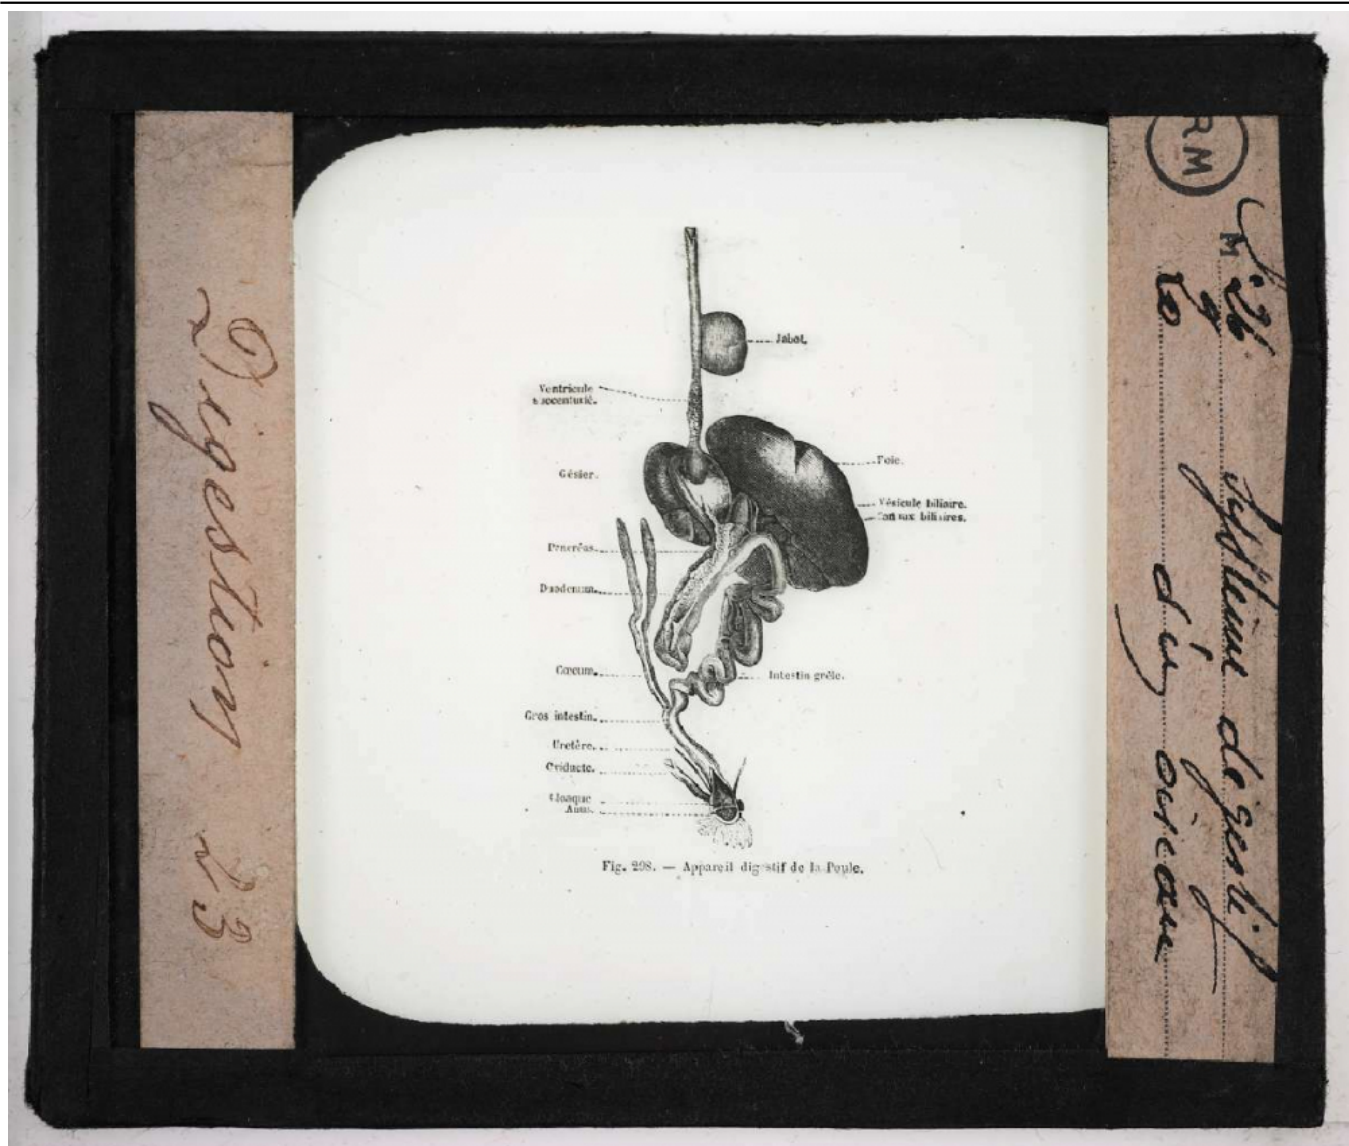 Digestion 23
Jabot.
Ventricule
succenturié.
Gésier.
Foie.
Vésicule biliaire.
Canaux biliaires.
Pancréas.
Duodenum.
Cœcum.
Intestin grêle.
Gros intestin.
Uretère.
Oviducte.
Cloaque
Anus.
Fig. 298. — Appareil digestif de la Poule.
RM
M
Système digestif
d'un oiseau